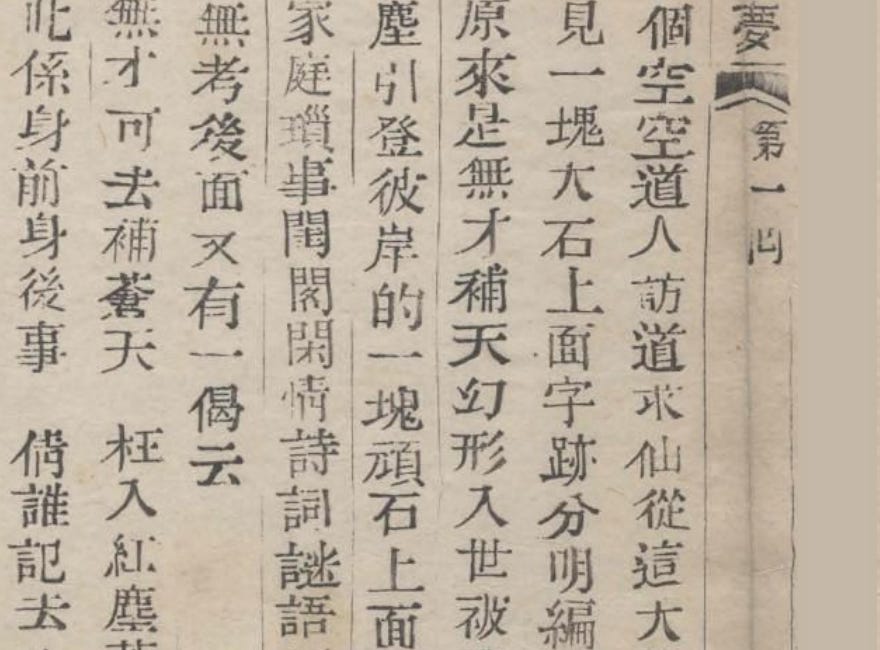 夢 第一回
個空空道人訪道求仙從這大
見一塊大石上面字跡分明編
原來是無才補天幻形入世被
塵引登彼岸的一塊頑石上面
家庭瑣事閨閣閑情詩詞謎語
無考後面又有一偈云
無才可去補蒼天 枉入紅塵
此係身前身後事 倩誰記去